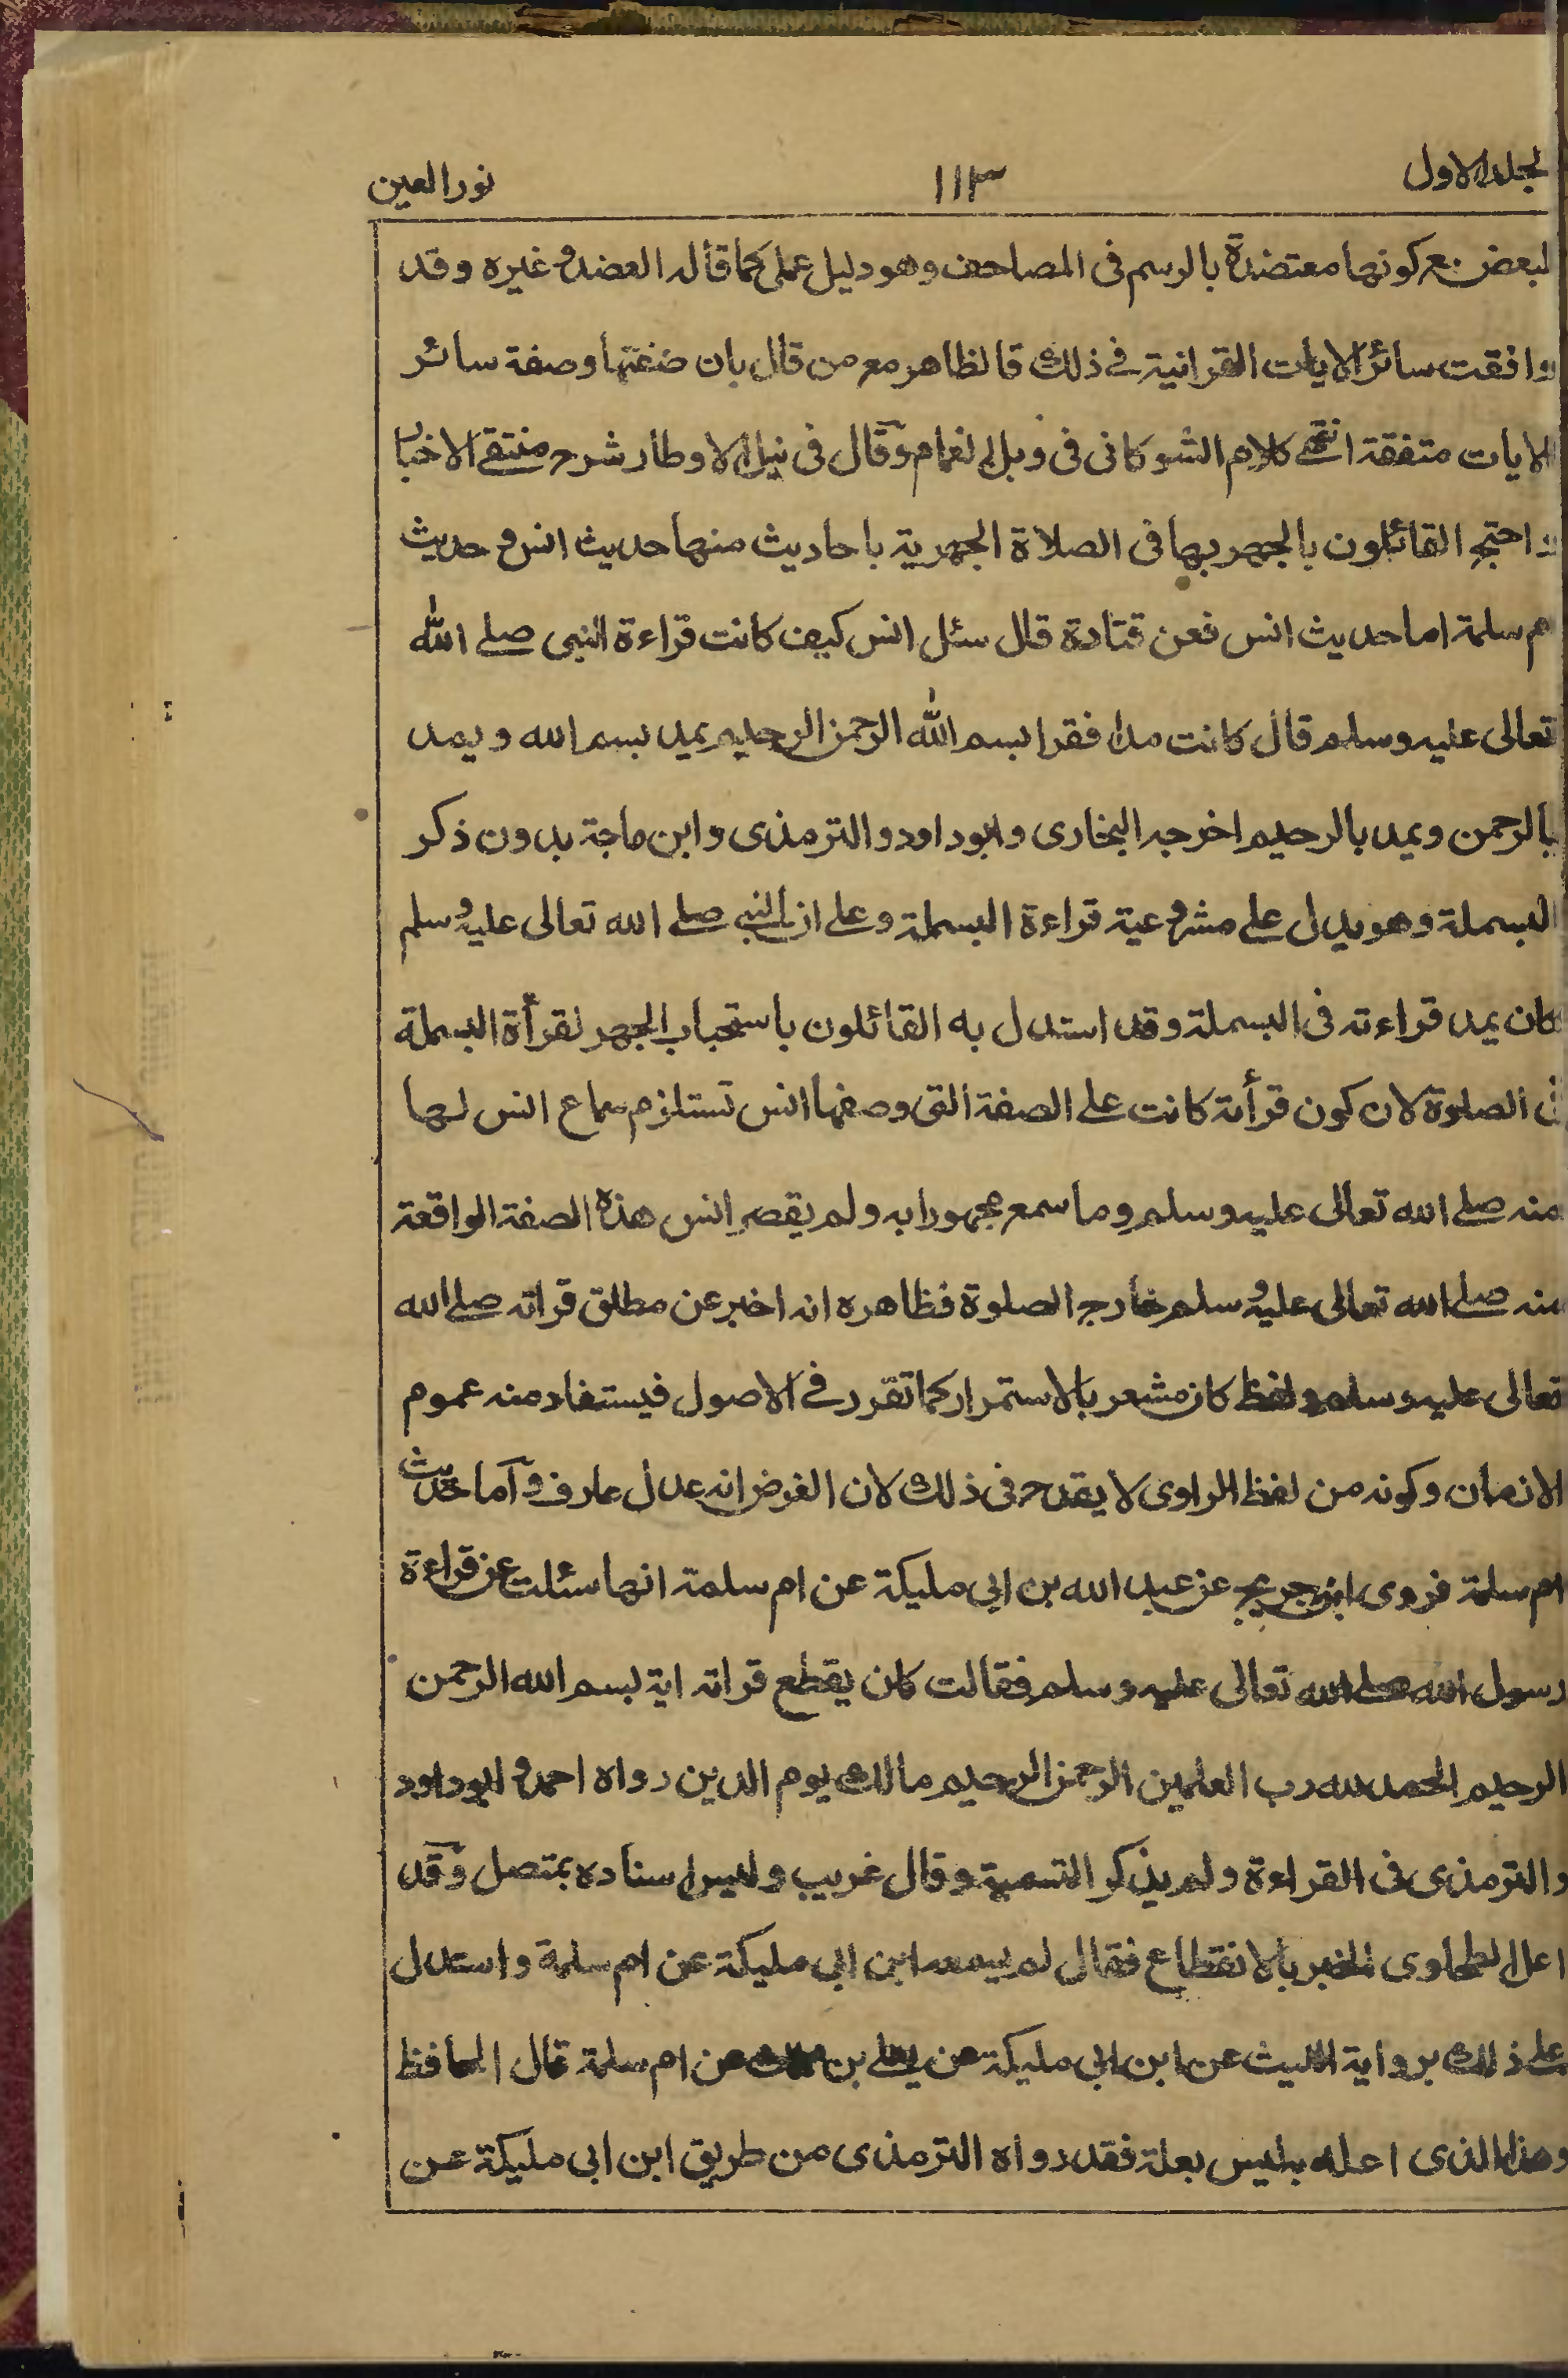 لجلد الاول ١١٣ نور العين
لبعض مع كونها معتضدة بالرسم فى المصاحف وهو دليل عملى كما قاله العضد وغيره وقد
وافقت سائر الايات القرانية فى ذلك فالظاهر مع من قال بان صفتها وصفة سائر
الايات متفقة انتهى كلام الشوكانى فى وبل الغمام وقال فى نيل الاوطار شرح منتقى الاخبار
احتج القائلون بالجهر بها فى الصلاة الجهرية باحاديث منها حديث انس و حديث
ام سلمة اما حديث انس فعن قتادة قال سئل انس كيف كانت قراءة النبى صلے الله
تعالى عليه وسلم قال كانت مدا فقرا بسم الله الرحمن الرحيم يمد بسم الله و يمد
بالرحمن ويمد بالرحيم اخرجه البخارى وابوداود والترمذى وابن ماجة بدون ذكر
البسملة وهو يدل على مشروعية قراءة البسملة وعلى ان النبى صلے الله تعالى عليه وسلم
كان يمد قراءته فى البسملة وقد استدل به القائلون باستحباب الجهر لقرأة البسملة
فى الصلوة لان كون قرأته كانت على الصفة التى وصفها انس تستلزم سماع انس لها
منه صلے الله تعالى عليه وسلم وما سمع مجهورا به ولم يقصر انس هذه الصفة الواقعة
منه صلے الله تعالى عليه وسلم خارج الصلوة فظاهره انه اخبر عن مطلق قراته صلے الله
تعالى عليه وسلم ولفظ كان مشعر بالاستمرار كما تقرر فى الاصول فيستفاد منه عموم
الازمان وكونه من لفظ الراوى لا يقدح فى ذلك لان الفرض انه عدل عارف وآما حديث
ام سلمة فروى ابن جريج عن عبد الله بن ابى مليكة عن ام سلمة انها سئلت عن قراءة
رسول الله صلے الله تعالى عليه وسلم فقالت كان يقطع قراته اية بسم الله الرحمن
الرحيم الحمد لله رب العلمين الرحمن الرحيم مالك يوم الدين رواه احمد و ابوداود
والترمذى فى القراءة ولم يذكر التسمية وقال غريب وليس اسناده بمتصل وقد
اعل الطحاوى الخبر بالانقطاع فقال لم يسمعه ابن ابى مليكة عن ام سلمة واستدل
على ذلك برواية الليث عن ابن ابى مليكة عن يعلى بن عن ام سلمة قال الحافظ
وهذا الذى اعله به ليس بعلة فقد رواه الترمذى من طريق ابن ابى مليكة عن